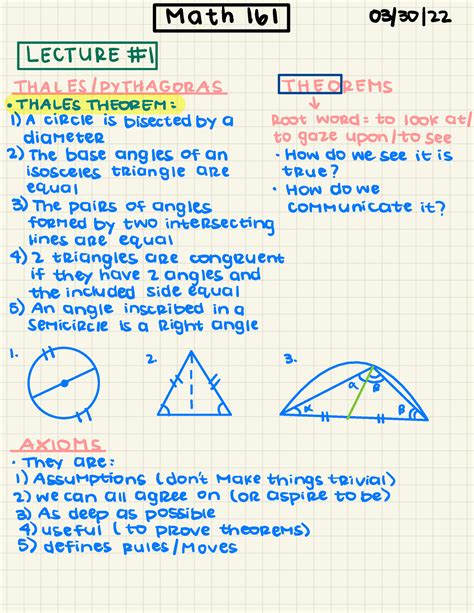 Math 161
03/30/22
LECTURE #1
THALES/PYTHAGORAS
• THALES THEOREM:
1) A circle is bisected by a
diameter
2) The base angles of an
isosceles triangle are
equal
3) The pairs of angles
formed by two intersecting
lines are equal
4) 2 triangles are congruent
if they have 2 angles and
the included side equal
5) An angle inscribed in a
semicircle is a right angle
THEOREMS
Root word = to look at/
to gaze upon/to see
• How do we see it is
true?
• How do we
communicate it?
1.
2.
3.
α
α
β
β
AXIOMS
• They are:
1) Assumptions (don't make things trivial)
2) we can all agree on (or aspire to be)
3) As deep as possible
4) useful (to prove theorems)
5) defines rules/moves